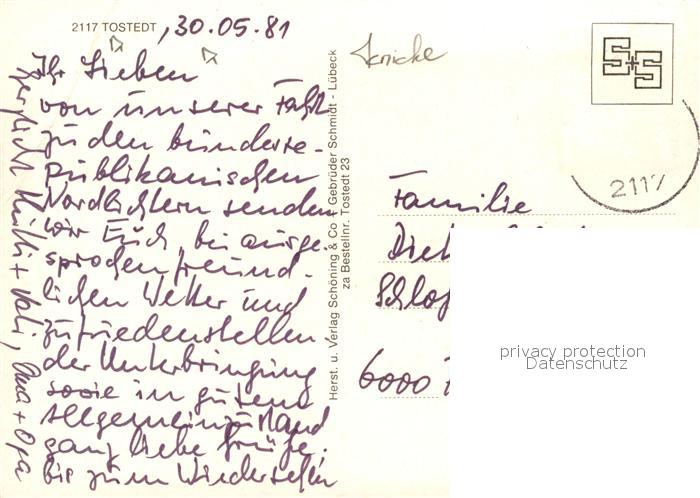 2117 TOSTEDT, 30.05.81
Ihr Lieben
von unserer Fahrt
zu den bundesre-
publikanischen
Nordlichtern senden
wir Euch, bei ausge-
sprochen freund-
lichen Wetter und
zufriedenstellen-
der Unterbringung
sowie in gutem
Allgemeinzustand
ganz liebe Grüße,
bis zum Wiedersehen
herzlichst Mutti + Vati, Oma + Opa
Herst. u. Verlag Schöning & Co + Gebrüder Schmidt - Lübeck
za Bestellnr. Tostedt 23
S+S
2117
Familie
6000
privacy protection
Datenschutz